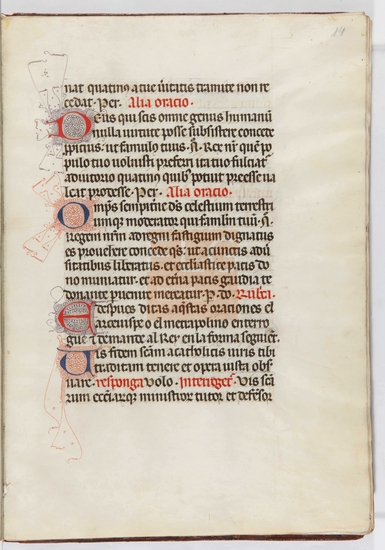 14
nat quatinus a tue ueritatis tramite non re
cedat. Per. Alia oracio.
Deus qui scis omne genus humanũ
nulla uirtute posse subsistere concede
propicius. ut famulus tuus. N. Rex nr̃ quem po
pulo tuo uoluisti preferri ita tuo fulciat̃
adiutorio quatinus quibs potuit preesse ua
leat prodesse. Per. Alia oracio.
Omps sempiterne ds celestium terrestri
umque moderator qui famlm tuũ. N.
Regem nr̃m ad regni fastigium dignatus
es prouehere concede qs. ut a cunctis adu
sitatibus liberatus. et ecclesiastice pacis do
no muniatur. et ad eterna pacis gaudia te
donante peruenire mereatur. P. do. Rubrica.
E despues dotras aquestas oraciones el
arceuispe o el metropolino enterro
gue e demande al Rey en la forma seguient.
Uis fidem scãm a catholicis uiris tibi
traditam tenere et opera iustis obs
uare. responga uolo. Interroget. Vis scã
rum eccl̃iarum minister tutor et defensor